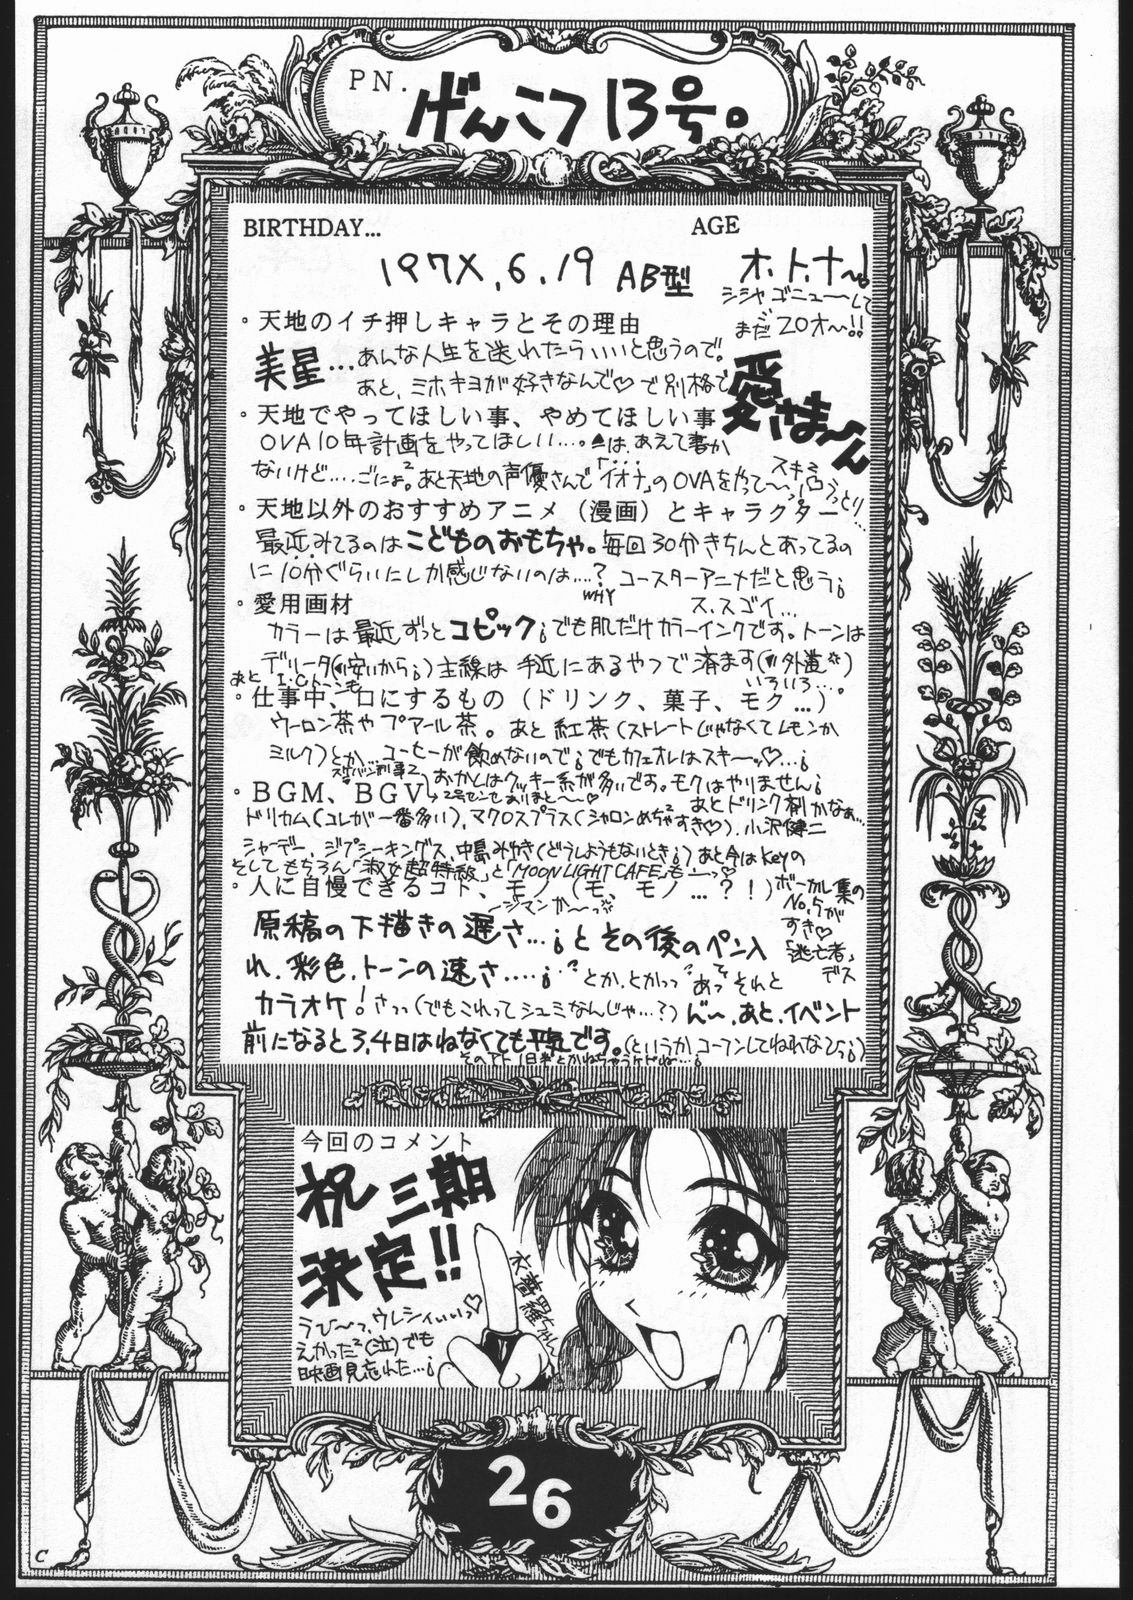 PN. げんこつ13号。
BIRTHDAY... AGE
197X.6.19 AB型 オ.ト.ナ〜!
シシャゴニューして
まだ20才〜!!
・天地のイチ押しキャラとその理由
美星…あんな人生を送れたらいいと思うので。
あと、ミホキヨが好きなんで♡で別格で
愛さま〜ん
・天地でやってほしい事、やめてほしい事
OVA10年計画をやってほしい…。▲は、あえて書か
ないけど…。ごにょ²。あと天地の声優さんで「イオナ」のOVAをやって〜っ
うっとり…
・天地以外のおすすめアニメ（漫画）とキャラクター
最近みてるのはこどものおもちゃ。毎回30分きちんとあってるの
に10分ぐらいにしか感じないのは…?コースターアニメだと思う¡
WHY ス、スゴイ…
・愛用画材
カラーは最近ずっとコピック¡でも肌だけカラーインクです。トーンは
デリータ(安いから¡)主線は手近にあるやつで済ます(外道)
あとI.Cトーンも いろいろ…。
・仕事中、口にするもの（ドリンク、菓子、モク…）
ウーロン茶やプアール茶。あと紅茶(ストレートじゃなくてレモンか
ミルク)とか…コーヒーが飲めないので¡でもカフェオレはスキ〜ッ♡…¡
おかしはクッキー系が多いです。モクはやりません¡
・BGM、BGV
スケバン刑事2 2号センセありまと〜〜♡
あとドリンク剤かなぁ…
ドリカム(コレが一番多い)、マクロスプラス(シャロンめちゃすき♡)、小沢健二
シャーデー、ジプシーキングス、中島みゆき(どうしようもないとき¡)あと今はkeyの
そしてもちろん「淑女超特級」と「MOON LIGHT CAFE」も―っ♡
ボーカル集の
No.5が
すき♡
「逃亡者」
デス
・人に自慢できるコト、モノ（モ、モノ…?!）
ジマンか〜っ
原稿の下描きの遅さ…¡とその後のペン入
れ、彩色、トーンの速さ…¡とか、とかっっ あっ それと
カラオケ!さっっ(でもこれってシュミなんじゃ…?)ん〜、あと、イベント
前になると3,4日はねなくても平気です。(というか、コーフンしてねれない¡)
そのアト1日半とかねちゃうケドね…¡
今回のコメント
祝三期
決定!!
うひ〜っ、ウレシィいいっ♡
えかった²(泣)でも
映画見忘れた…¡
26
C